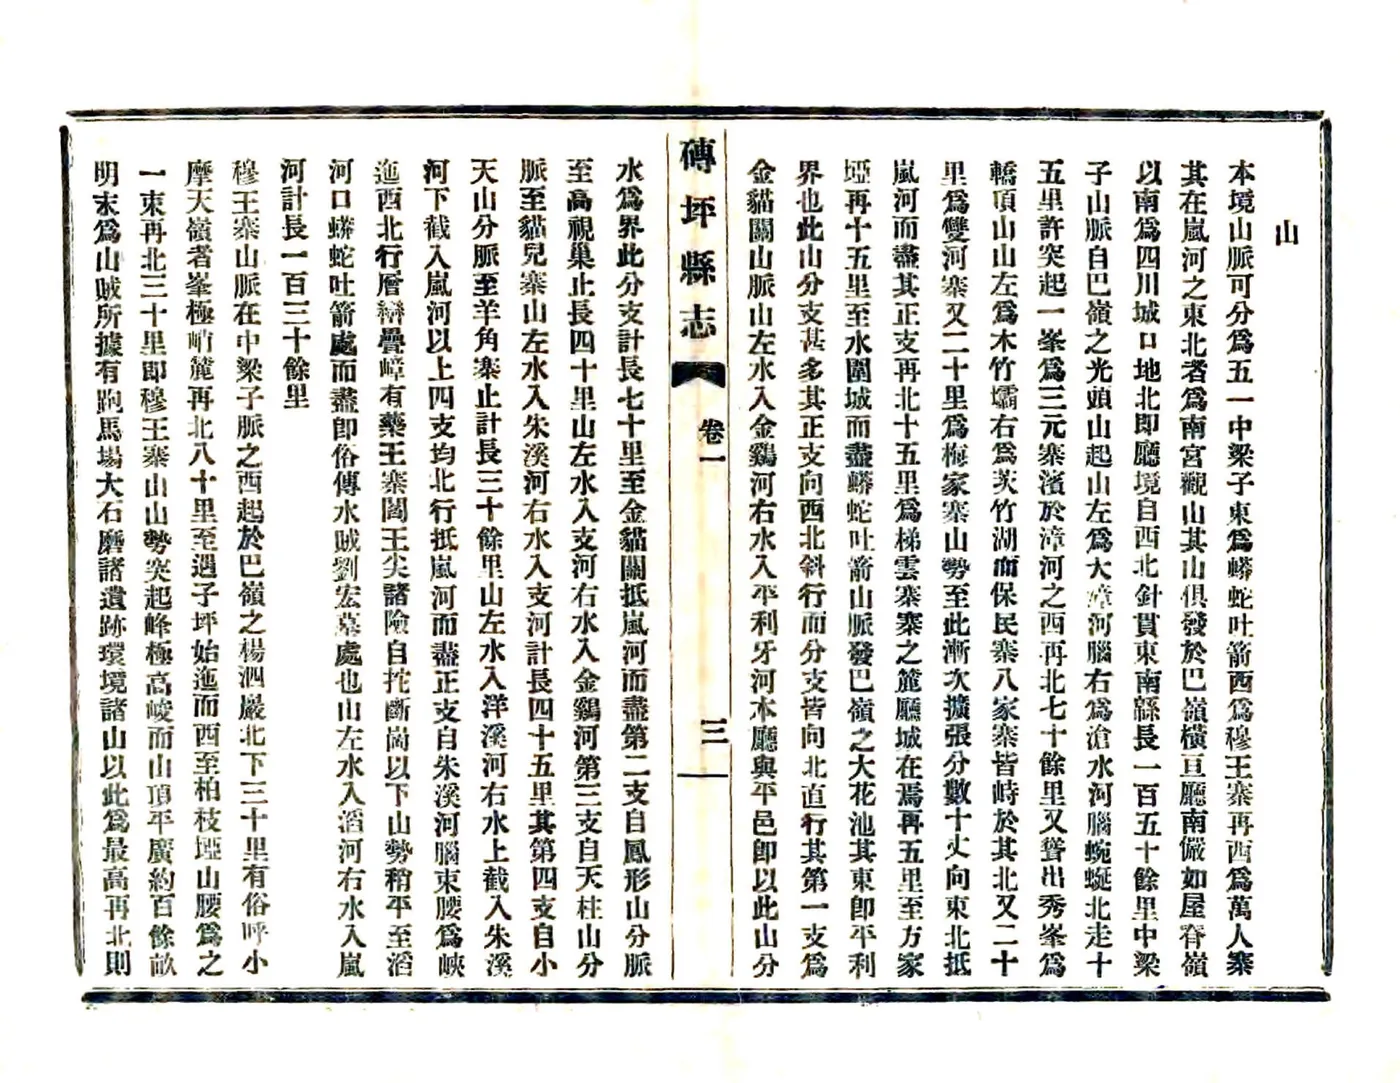 山
本境山脈可分爲五一中梁子東爲蟒蛇吐箭西爲穆王寨再西爲萬人寨
其在嵐河之東北者爲南宮觀山其山俱發於巴嶺橫亘廳南儼如屋脊嶺
以南爲四川城口地北即廳境自西北針貫東南緜長一百五十餘里中梁
子山脈自巴嶺之光頭山起山左爲大漳河腦右爲滄水河腦蜿蜒北走十
五里許突起一峯爲三元寨濱於漳河之西再北七十餘里又聳出秀峯爲
轎頂山山左爲木竹壩右爲茨竹湖而保民寨八家寨皆峙於其北又二十
里爲雙河寨又二十里爲梅家寨山勢至此漸次擴張分數十丈向東北抵
嵐河而盡其正支再北十五里爲梯雲寨寨之麓廳城在焉再五里至方家
埡再十五里至水圍城而盡蟒蛇吐箭山脈發巴嶺之大花池其東卽平利
界也此山分支甚多其正支向西北斜行而分支皆向北直行其第一支爲
金貓關山脈山左水入金鷄河右水入平利牙河本廳與平邑卽以此山分
磚坪縣志
卷一
三
水爲界此分支計長七十里至金貓關抵嵐河而盡第二支自鳳形山分脈
至高視巢止長四十里山左水入支河右水入金鷄河第三支自天柱山分
脈至貓兒寨山左水入朱溪河右水入支河計長四十五里其第四支自小
天山分脈至羊角寨止計長三十餘里山左水入洋溪河右水上截入朱溪
河下截入嵐河以上四支均北行抵嵐河而盡正支自朱溪河腦束腰爲峽
迤西北行層巒疊嶂有藥王寨閻王尖諸險自挓斷崗以下山勢稍平至滔
河口蟒蛇吐箭處而盡卽俗傳水賊劉宏墓處也山左水入滔河右水入嵐
河計長一百三十餘里
穆王寨山脈在中梁子脈之西起於巴嶺之楊泗巖北下三十里有俗呼小
摩天嶺者峯極峭麓再北八十里至遇子坪始迤而西至柏枝埡山腰爲之
一束再北三十里卽穆王寨山山勢突起峰極高峻而山頂平廣約百餘畝
明末爲山賊所據有跑馬場大石磨諸遺跡環境諸山以此爲最高再北則